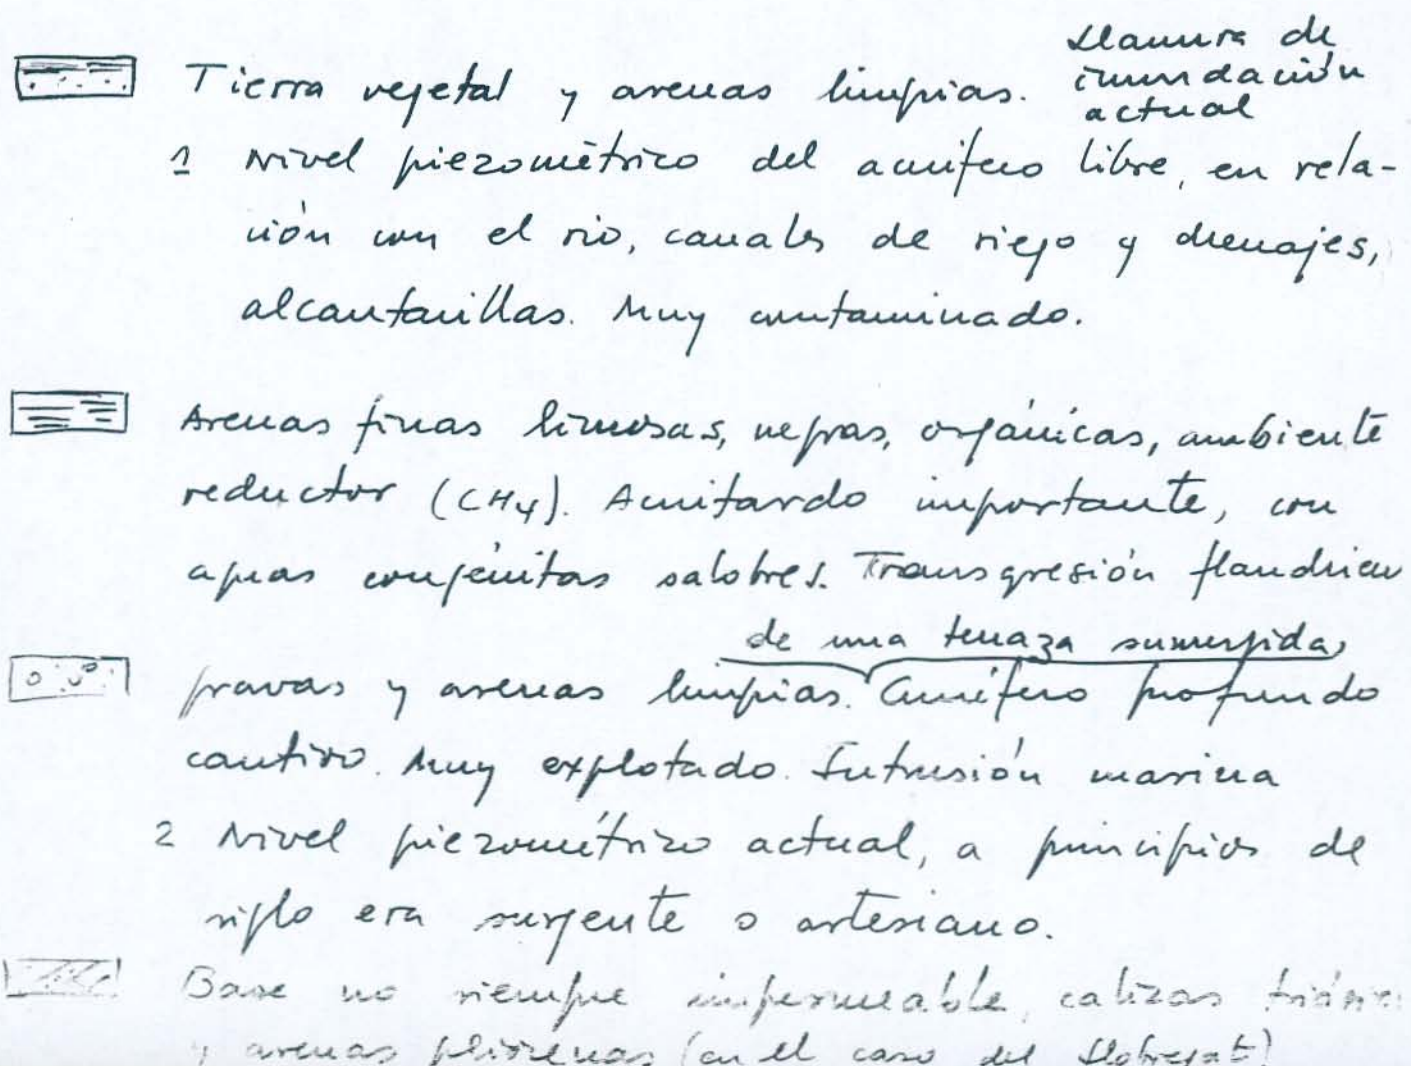 Llanura de
inundación
actual
Tierra vegetal y arenas limpias.
1 Nivel piezométrico del acuífero libre, en rela-
ción con el rio, canales de riego y drenajes,
alcantarillas. Muy contaminado.
Arenas finas limosas, negras, orgánicas, ambiente
reductor (CH4). Acuitardo importante, con
aguas congénitas salobres. Transgresión flandrien
de una terraza sumergida
gravas y arenas limpias. Acuífero profundo
cautivo. Muy explotado. Intrusión marina
2 Nivel piezométrico actual, a principios de
siglo era surgente o artesiano.
Base no siempre impermeable, calizas
y arenas pliocenas (en el caso del Llobregat)